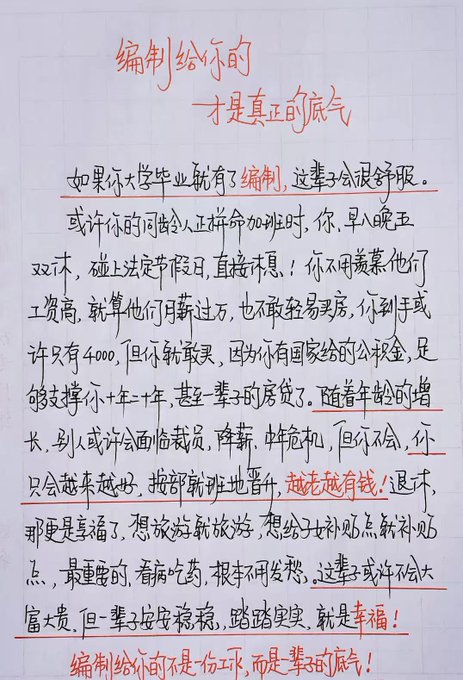 编制给你的
才是真正的底气
如果你大学毕业就有了编制，这辈子会很舒服。
或许你的同龄人正拼命加班时，你，早八晚五
双休，碰上法定节假日，直接休息！你不用羡慕他们
工资高，就算他们月薪过万，也不敢轻易买房，你到手或
许只有4000，但你就敢买，因为你有国家给的公积金，足
够支撑你十年二十年，甚至一辈子的房贷了。随着年龄的增
长，别人或许会面临裁员，降薪，中年危机，但你不会，你
只会越来越好，按部就班地晋升，越老越有钱！退休，
那更是享福了，想旅游就旅游，想给子女补贴点就补贴
点，最重要的，看病吃药，根本不用发愁，。这辈子或许不会大
富大贵，但一辈子安安稳稳，踏踏实实，就是幸福！
编制给你的不是一份工作，而是一辈子的底气！